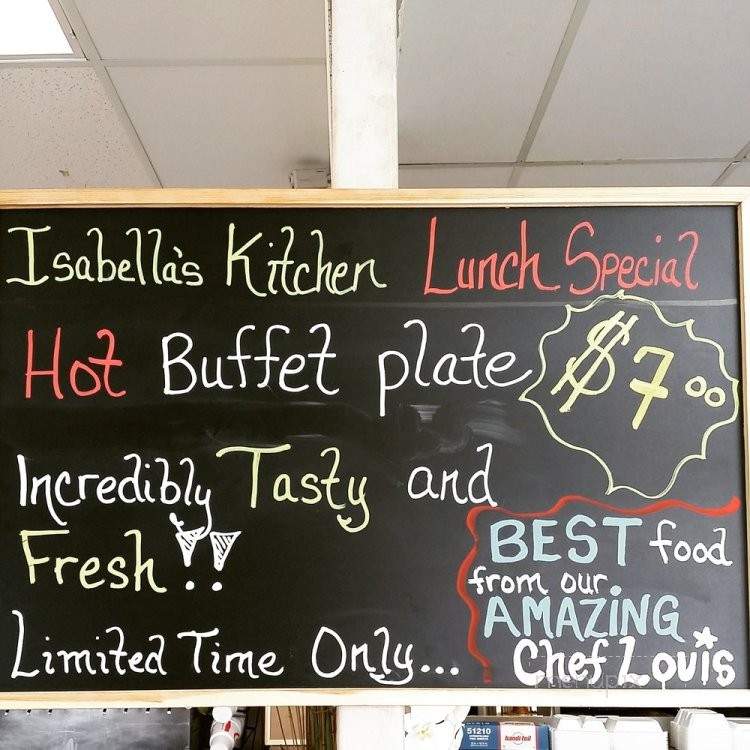 Isabella's Kitchen Lunch Special
Hot Buffet plate $7.00
Incredibly Tasty and
Fresh!!
Limited Time Only...
BEST food
from our
AMAZING
Chef Louis
menupix
51210
handi-foil